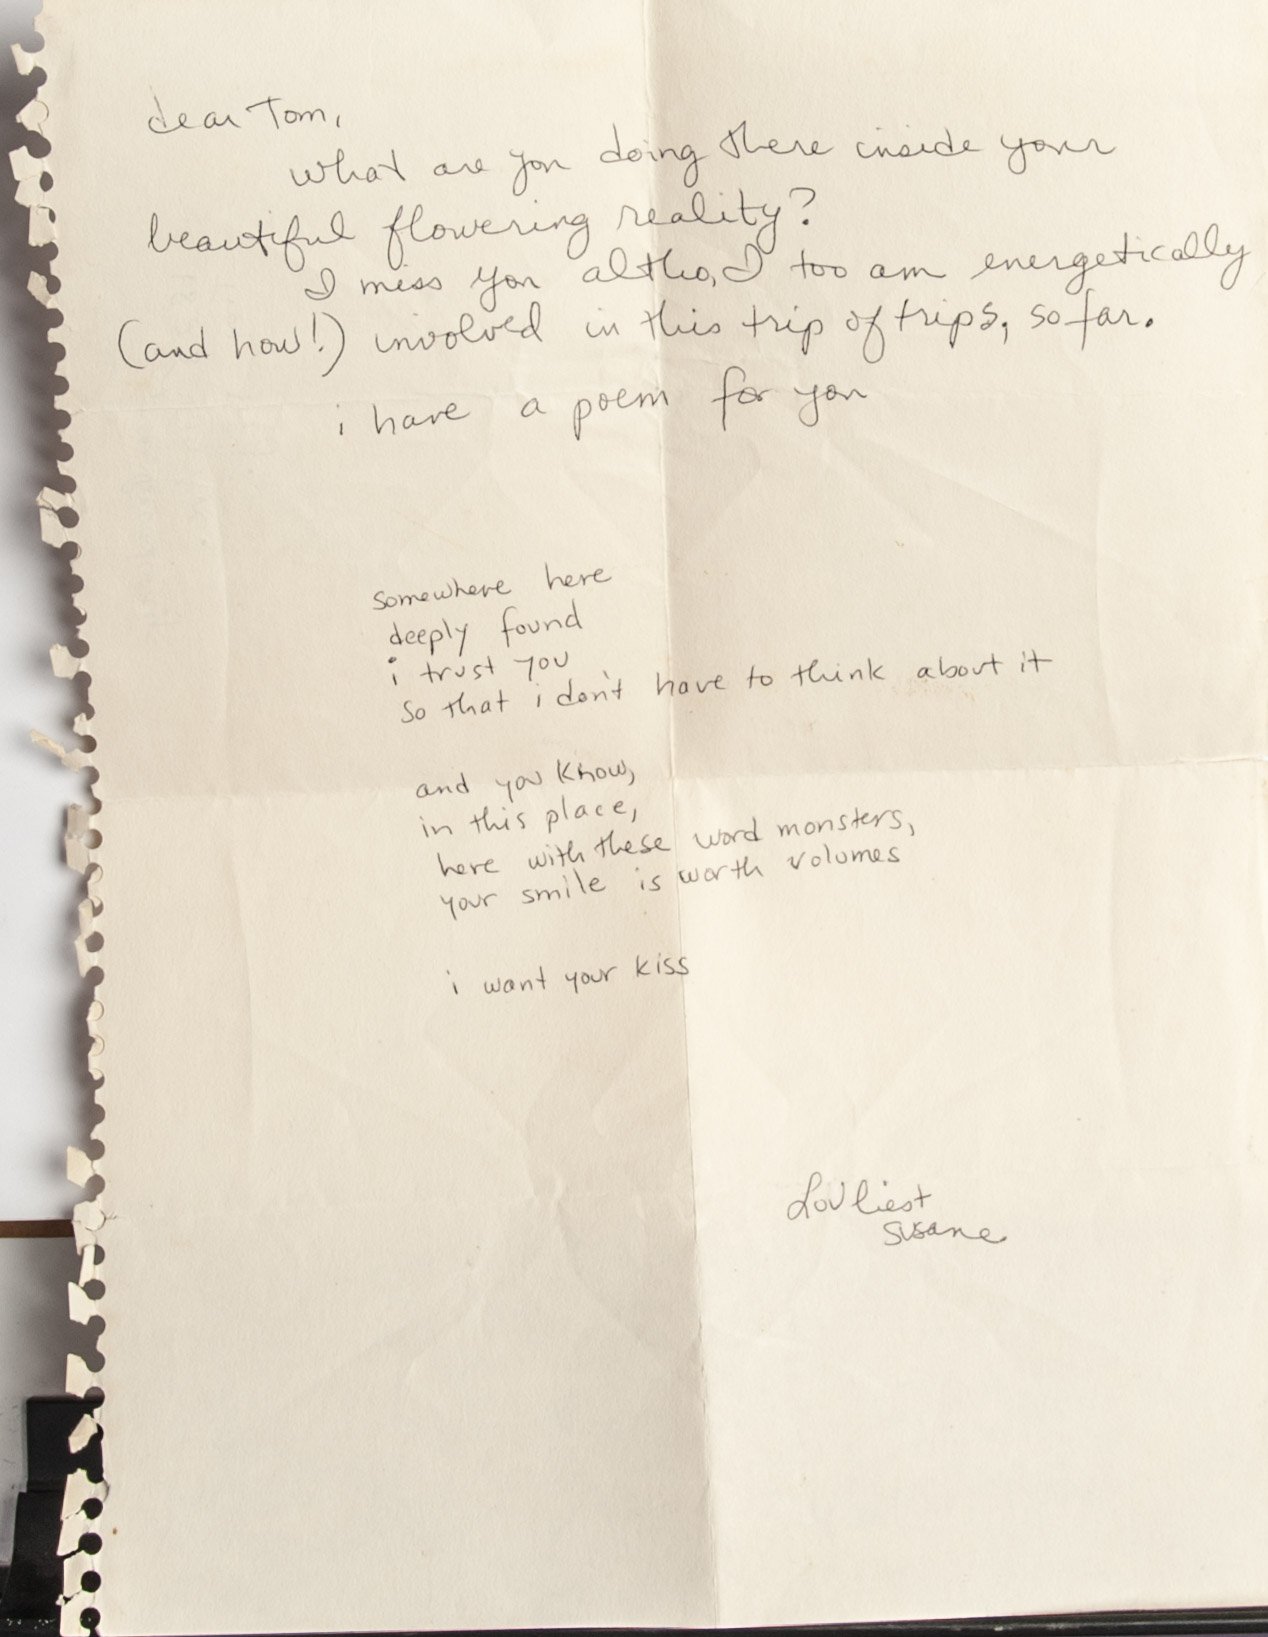 dear Tom,
what are you doing there inside your
beautiful flowering reality?
I miss you altho, I too am energetically
(and how!) involved in this trip of trips, so far.
i have a poem for you
somewhere here
deeply found
i trust you
so that i don't have to think about it
and you know,
in this place,
here with these word monsters,
your smile is worth volumes
i want your kiss
Lovliest
susane